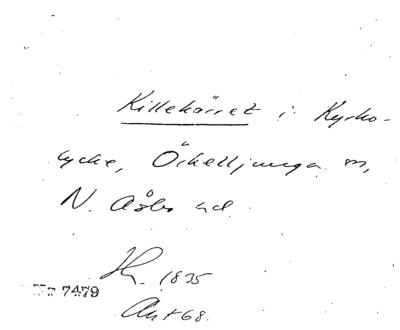 Killekärret i Kyrko-
lycke, Örkelljunga sn,
N. Åsbo hd.
1835
7479